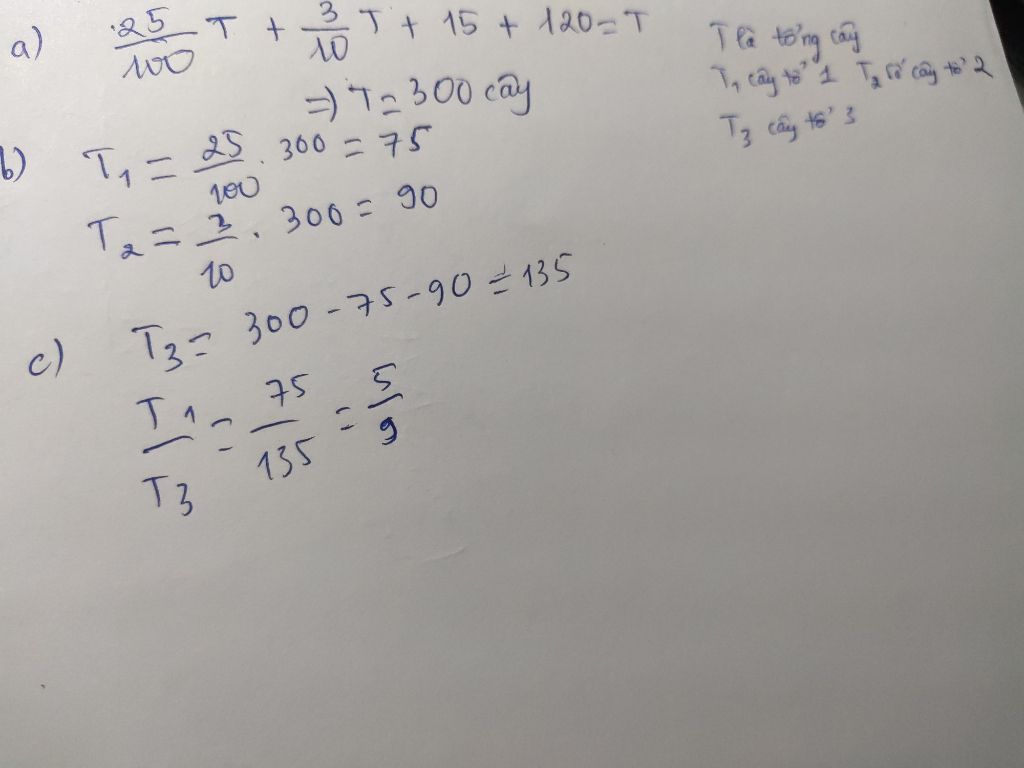 a) 25/100 T + 3/10 T + 15 + 120 = T
=) T = 300 cây
T là tổng cây
T₁ cây tổ 1 T₂ số cây tổ 2
T₃ cây tổ 3
b) T₁ = 25/100 . 300 = 75
T₂ = 3/10 . 300 = 90
c) T₃ = 300 - 75 - 90 = 135
T₁/T₃ = 75/135 = 5/9